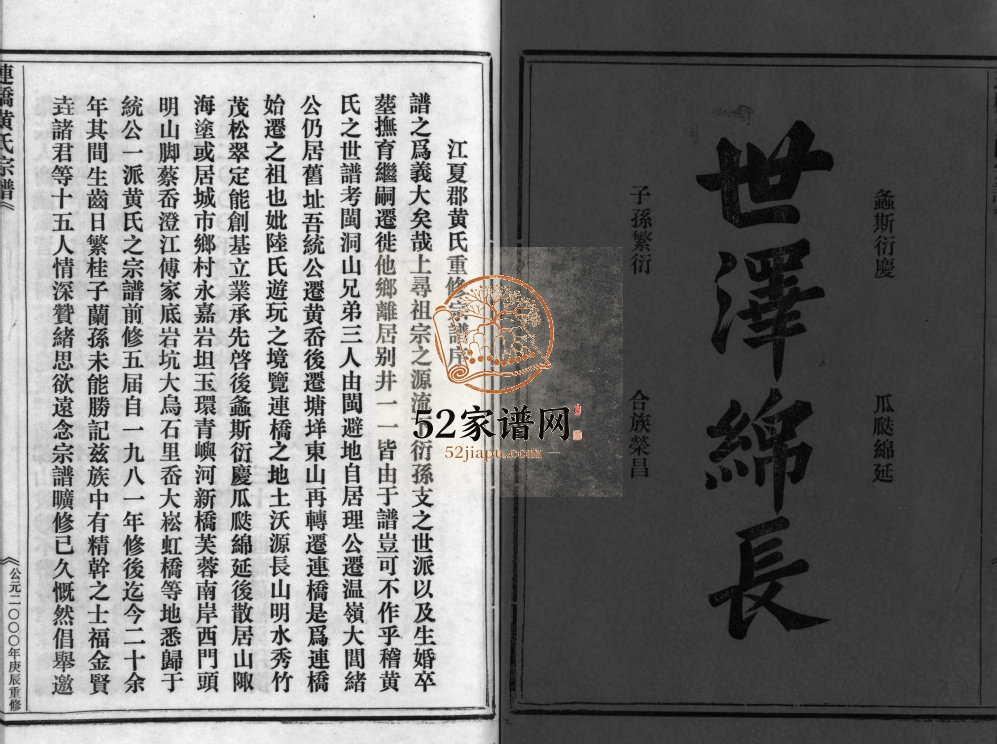 螽斯衍慶
瓜瓞綿延
世澤綿長
子孫繁衍
合族榮昌
江夏郡黄氏重修宗譜序
譜之爲義大矣哉上尋祖宗之源流衍孫支之世派以及生婚卒
塟撫育繼嗣遷徙他鄉離居别井一一皆由于譜豈可不作乎稽黄
氏之世譜考閩洞山兄弟三人由閩避地自居理公遷温嶺大閭緒
公仍居舊址吾統公遷黄岙後遷塘垟東山再轉遷連橋是爲連橋
始遷之祖也妣陸氏遊玩之境覽連橋之地土沃源長山明水秀竹
茂松翠定能創基立業承先啓後螽斯衍慶瓜瓞綿延後散居山陬
海塗或居城市鄉村永嘉岩坦玉環青嶼河新橋芙蓉南岸西門頭
明山脚蔡岙澄江傅家底岩坑大烏石里岙大崧虹橋等地悉歸于
統公一派黄氏之宗譜前修五届自一九八一年修後迄今二十余
年其間生齒日繁桂子蘭孫未能勝記兹族中有精幹之士福金賢
垚諸君等十五人情深贊緒思欲遠念宗譜曠修已久慨然倡舉邀
連橋黄氏宗譜《
《公元二〇〇〇年庚辰重修
52家谱网
52jiapu.com